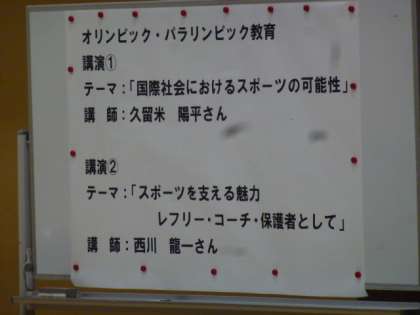 オリンピック・パラリンピック教育
講演①
テーマ：「国際社会におけるスポーツの可能性」
講　師：久留米　陽平さん
講演②
テーマ：「スポーツを支える魅力
レフリー・コーチ・保護者として」
講　師：西川　龍一さん